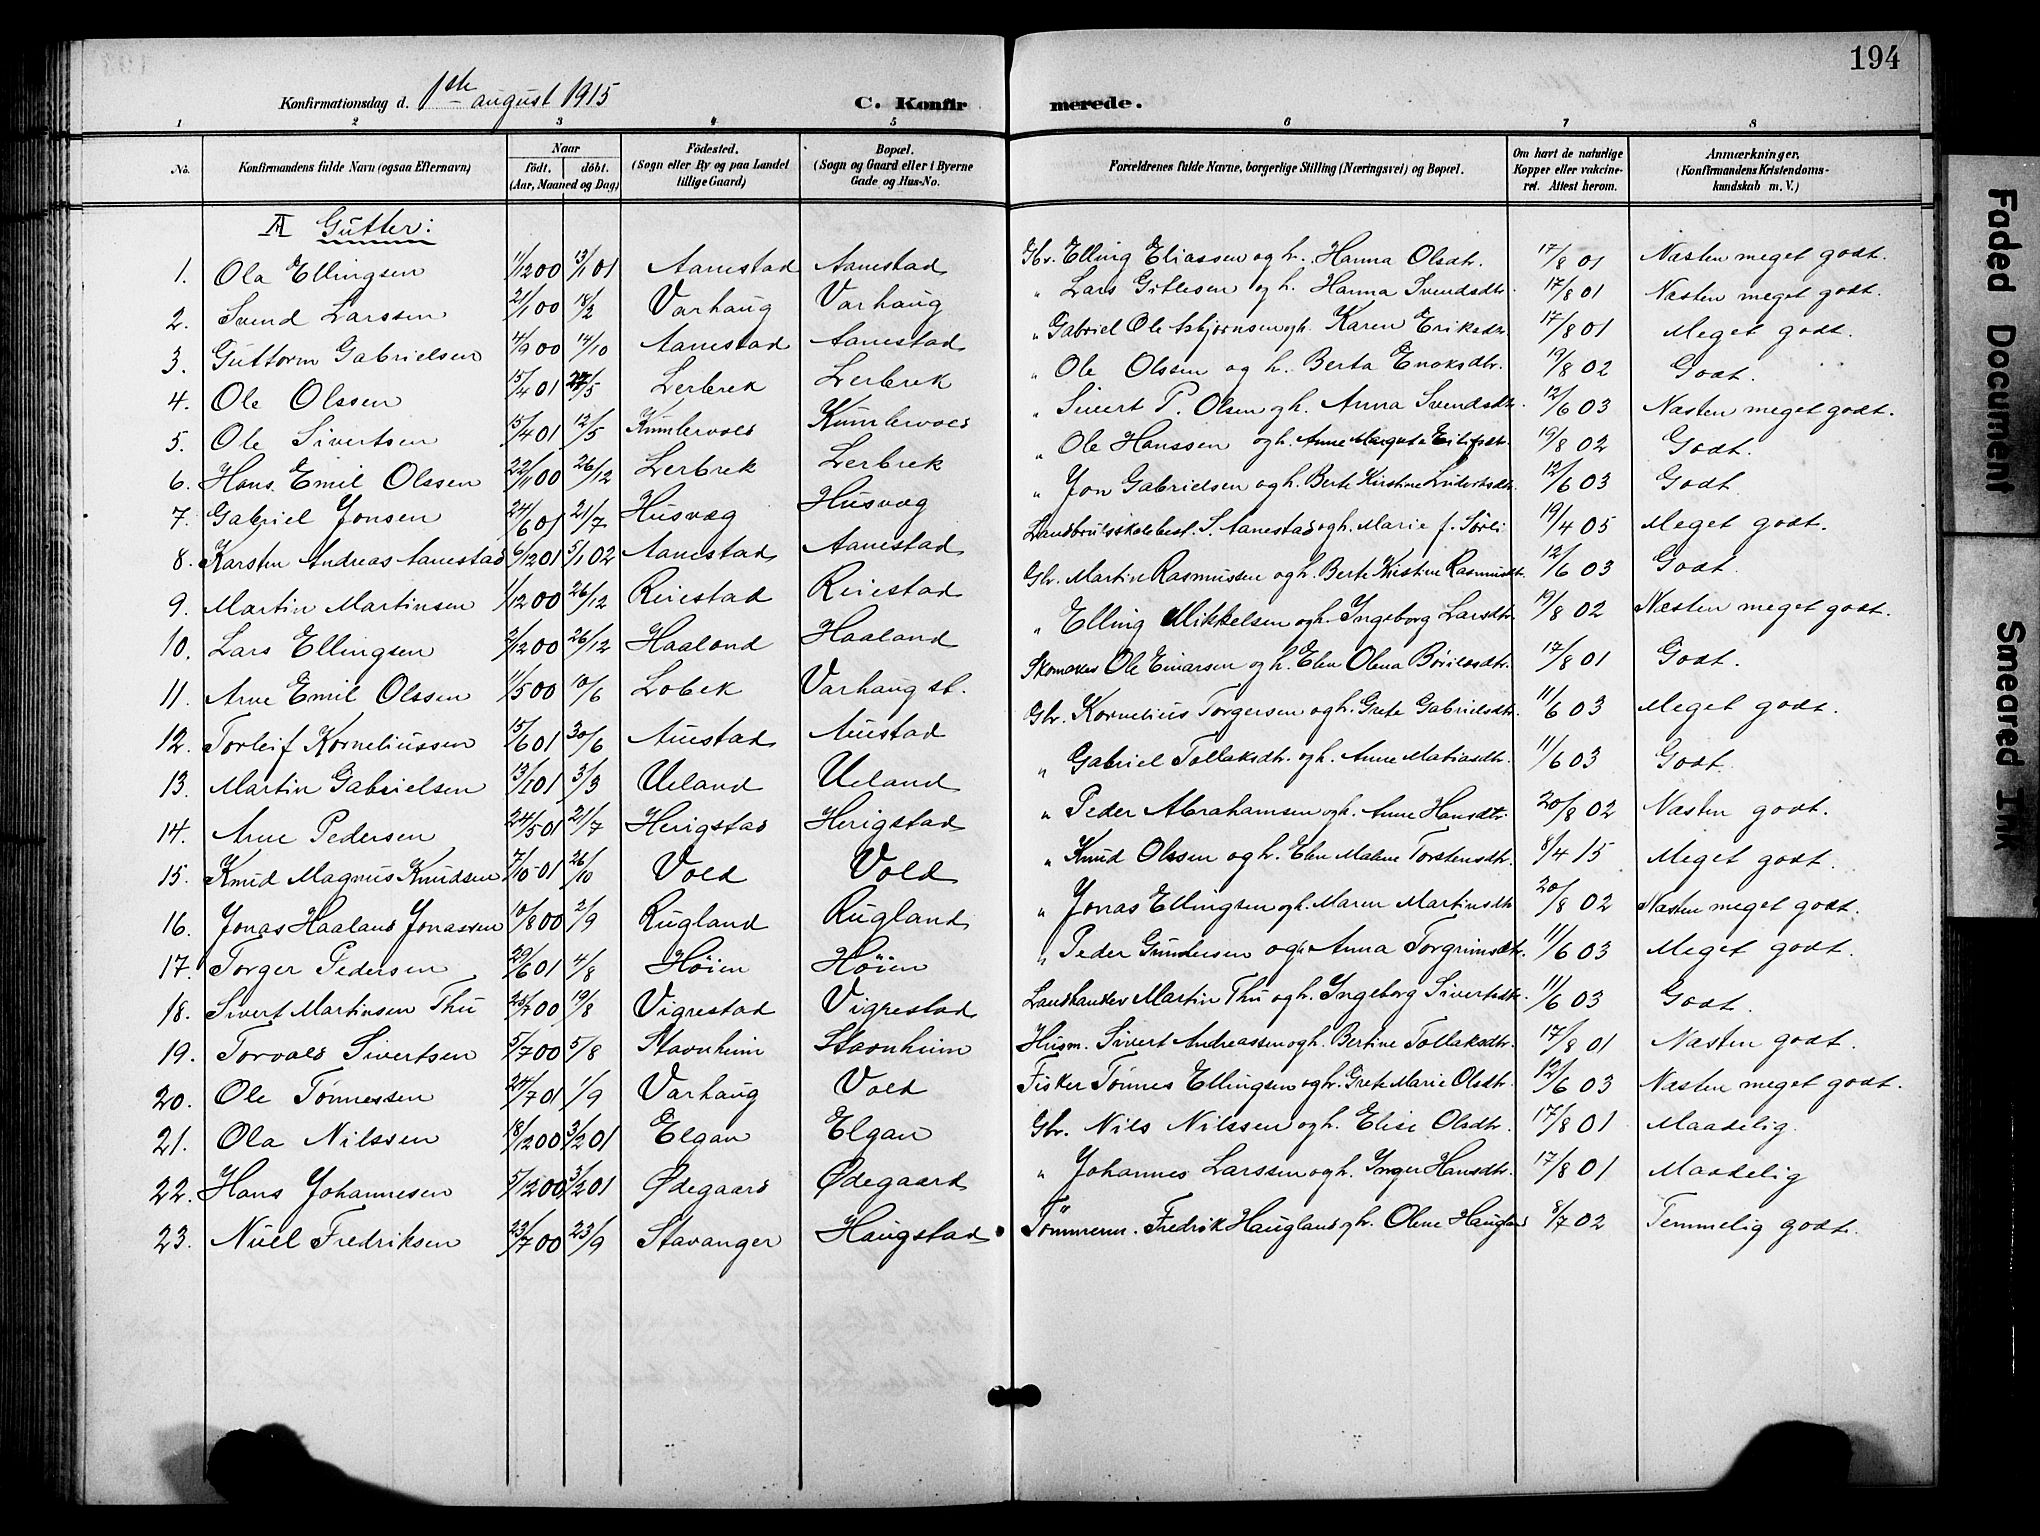 194
Konfirmationsdag d. 1ste august 1915 C. Konfirmerede.
1 2 3 4 5 6 7 8
No. Konfirmandens fulde Navn (ogsaa Efternavn) Naar födt. döbt. (Aar, Maaned og Dag) Födested. (Sogn eller By og paa Landet tillige Gaard) Bopæl. (Sogn og Gaard eller i Byerne Gade og Hus-No. Forældrenes fulde Navne, borgerlige Stilling (Næringsvei) og Bopæl. Om havt de naturlige Kopper eller vakcineret. Attest herom. Anmærkninger. (Konfirmandens Kristendomskundskab m. V.)
A Gutter:
1. Ola Ellingsen 1/12 00 13/1 01 Aanestad Aanestad Gbr. Elling Eliassen og h. Hanna Olsdtr. 17/8 01 Næsten meget godt.
2. Svend Larssen 21/1 00 18/2 Varhaug Varhaug " Lars Gitlesen og h. Hanna Svendsdtr. 17/8 01 Næsten meget godt.
3. Guttorm Gabrielsen 14/9 00 14/10 Aanestad Aanestad " Gabriel Ole Asbjørnsen og h. Karen Eriksdtr. 17/8 01 Meget godt.
4. Ole Olssen 15/4 01 27/5 Lerbrek Lerbrek " Ole Olssen og h. Berta Enoksdtr. 19/8 02 Godt.
5. Ole Sivertsen 15/4 01 12/5 Kumlevoll Kumlevoll " Sivert P. Olsen og h. Anna Svendsdtr. 12/6 03 Næsten meget godt.
6. Hans Emil Olssen 22/11 00 26/12 Lerbrek Lerbrek " Ole Hanssen og h. Anne Margreta Eilifsdtr. 19/8 02 Godt.
7. Gabriel Jonsen 24/6 01 21/7 Husvæg Husvæg " Jon Gabrielsen og h. Berte Kirstine 12/6 03 Godt.
8. Karsten Andreas Aanestad 6/12 01 5/1 02 Aanestad Aanestad Landbruksskolebest. S. Aanestad og h. Marie f. Sørli 19/4 05 Meget godt.
9. Martin Martinsen 1/12 00 26/12 Reiestad Reiestad Gbr. Martin Rasmussen og h. Berte Kristine Rasmusdtr. 12/6 03 Godt.
10. Lars Ellingsen 2/12 00 26/12 Haaland Haaland " Elling Mikkelsen og h. Ingeborg Larsdtr. 19/8 02 Næsten meget godt.
11. Arne Emil Olssen 11/5 00 10/6 Lobek Varhaug st. Skomaker Ole Einarsen og h. Elen Olena 17/8 01 Godt.
12. Torleif Korneliussen 15/6 01 30/6 Auestad Auestad Gbr. Kornelius Torgersen og h. Grete Gabrielsdtr. 11/6 03 Meget godt.
13. Martin Gabrielsen 13/1 01 3/3 Ueland Ueland " Gabriel Tollaksdtr. og h. Anne Matiasdtr. 11/6 03 Godt.
14. Arne Pedersen 24/5 01 21/7 Herigstad Herigstad " Peder Abrahamsen og h. Anne Hansdtr. 20/8 02 Næsten godt.
15. Knud Magnus Knudsen 7/10 01 26/10 Vold Vold " Knud Olssen og h. Elen Malene Torstensdtr. 8/4 15 Meget godt.
16. Jonas Haaland Jonassen 10/8 00 2/9 Rugland Rugland " Jonas Ellingsen og h. Maren Martinsdtr. 20/8 02 Næsten meget godt.
17. Torger Pedersen 29/6 01 4/8 Høien Høien " Peder Gundersen og h. Anna Torgrimsdtr. 11/6 03 Meget godt.
18. Sivert Martinsen Thu 25/7 00 19/8 Vigrestad Vigrestad Landhandler Martin Thu og h. Ingeborg Sivertsdtr. 11/6 03 Godt.
19. Torvald Sivertsen 5/7 00 5/8 Stavnheim Stavnheim Husm. Sivert Andreassen og h. Bertine Tollaksdtr. 17/8 01 Næsten godt.
20. Ole Tønnessen 24/7 01 1/9 Varhaug Vold Fisker Tønnes Ellingsen og h. Grete Marie Olsdtr. 12/6 03 Næsten meget godt.
21. Ola Nilssen 18/12 00 3/2 01 Elgan Elgan Gbr. Nils Nilssen og h. Elise Olsdtr. 17/8 01 Maadelig
22. Hans Johannesen 5/12 00 3/2 01 Ødegaard Ødegaard " Johannes Larssen og h. Inger Hansdtr. 17/8 01 Maadelig
23. Nuel Fredriksen 23/7 00 23/9 Stavanger Haugstad Tømrerm. Fredrik Haugland og h. Olene Haugland 8/7 02 Temmelig godt.
Faded Document
Smeared Ink